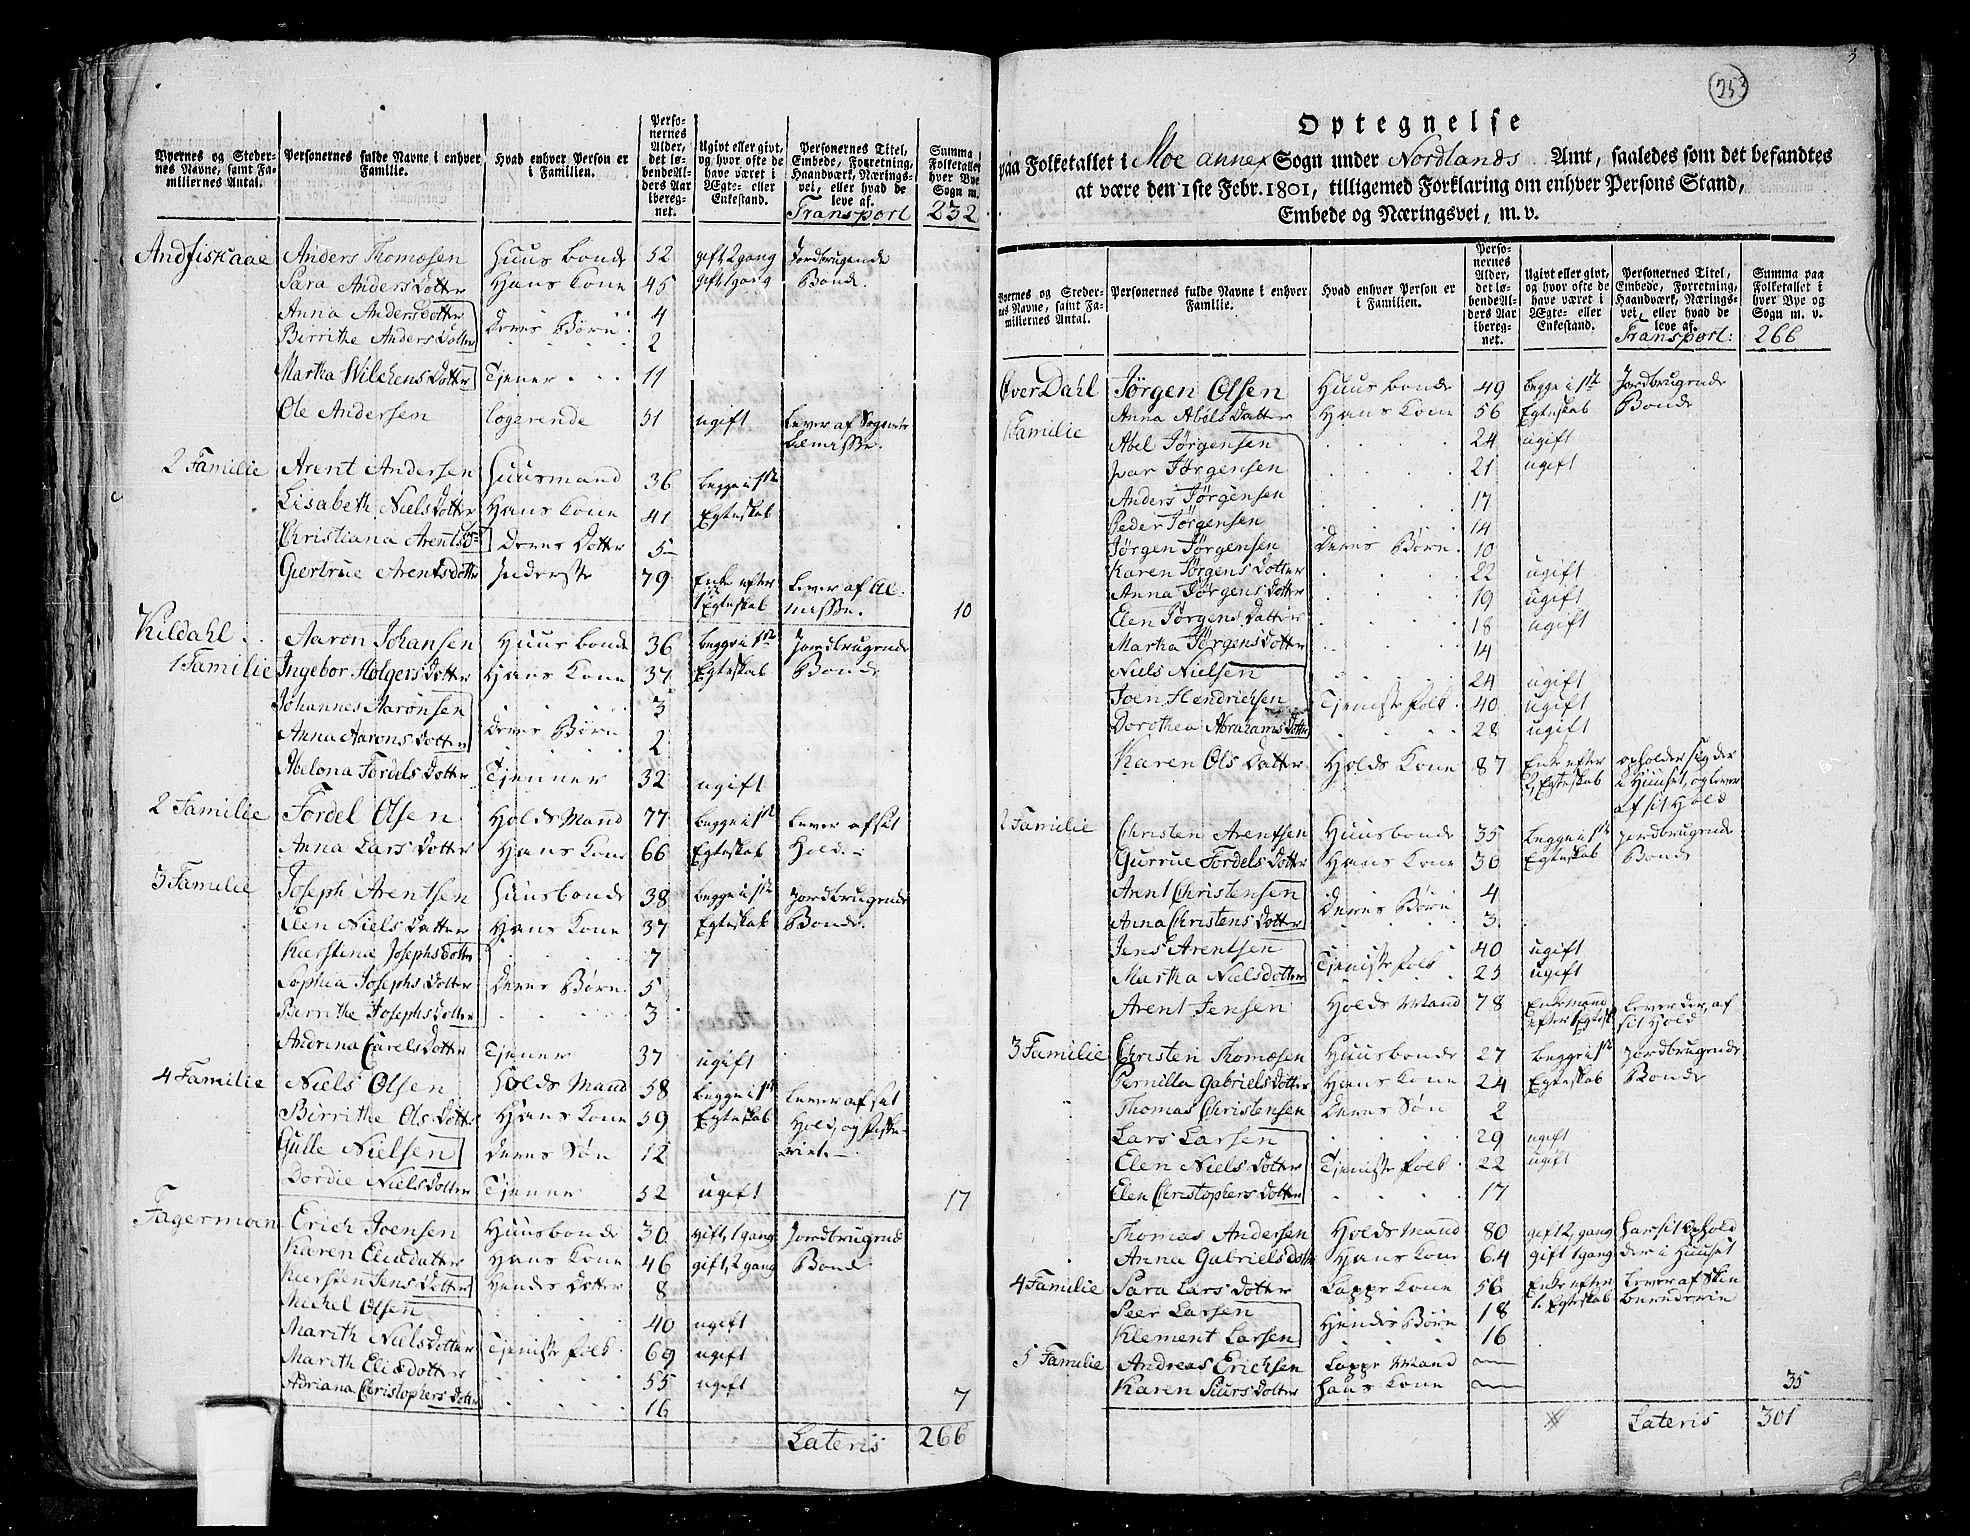 Byernes og Steder- nes Navne, samt Fa- miliernes Antal. | Personernes fulde Navne i enhver Familie. | Hvad enhver Person er i Familien. | Perso- nernes Alder, det lø- bende Al- ders Aar ibereg- net. | Ugivt eller givt, og hvor ofte de have været i Ægte- eller Enkestand. | Personernes Titel, Embede, Forretning, Haandværk, Nærings- vei, eller hvad de leve af. | Summa Folketallet hver Bye Sogn m.
Transport 232
Andfiskaae Anders Thomæsen Huusbonde 52 gift 2 gang Jordbrugende
Sara Anders Dotter Hans Kone 45 gift 1 gang Bonde.
Anna Andersdotter 4
Birrithe Anders Dotter Deres Børn 2
Martha Wilchens Dotter Tjener 11
Ole Andersen logerende 51 ugift Lever af Sognets
Almisse.
2 Familie Arent Andersen Huusmand 36 begge i 1ste
Lisabeth Niels Dotter Hans Kone 41 Egteskab
Christiana Arents D: Deres Dotter 5
Giertrue Arentsdotter Inderste 79 Enke efter Lever af Al-
1 Egteskab misse. 10
Kildahl Aaron Johansen Huusbonde 36 begge i 1ste Jordbrugende
1 Familie Ingebor Holgers Dotter Hans Kone 37 Egteskab Bonde
Johannes Aaronsen 3
Anna Aarons Dotter Deres Børn 2
Abelona Tordels Dotter Tjenner 32 ugift
2 Familie Tordel Olsen Holds Mand 77 begge i 1ste Lever af sit
Anna Lars Dotter Hans Kone 66 Egteskab Hold
3 Familie Joseph Arentsen Huusbonde 38 begge i 1ste Jordbrugende
Elen Niels Datter Hans Kone 37 Egteskab Bonde.
Kierstina Josephs Dotter 7
Sophia Josephs Dotter Deres Børn 5
Birrithe Josephs Dotter 3
Andrina Carels Dotter Tjener 37 ugift
4 Familie Niels Olsen Holds Mand 58 begge i 1ste Lever af sit
Birrithe Ols Dotter Hans Kone 59 Egteskab Hold, og Fiske-
Gulle Nielsen Deres Søn 12 riet
Dordie Niels Dotter Tjener 52 ugift 17
Fagermoen Erich Joensen Huusbonde 30 gift 1 gang Jordbrugend
Karen Eliædatter Hans Kone 46 gift 2 gang Bonde
Kiersten Jens Dotter Hendes Dotter 8
Michel Olsen 40 ugift
Marith Niels Dotter Tjeniste folk 69 ugift
Marith Eliædotter 55 ugift
Adriana Christophers Dotter 16 7
Lateris 266
253
Optegnelse
paa Folketallet i Moe annex Sogn under Nordlands Amt, saaledes som det befandtes
at være den 1ste Febr. 1801, tilligemed Forklaring om enhver Persons Stand,
Embede og Næringsvei, m. v.
Byernes og Steder- nes Navne, samt Fa- miliernes Antal. | Personernes fulde Navne i enhver Familie. | Hvad enhver Person er i Familien. | Perso- nernes Alder, det lø- bende Al- ders Aar ibereg- net. | Ugivt eller givt, og hvor ofte de have været i Ægte- eller Enkestand. | Personernes Titel, Embede, Forretning, Haandværk, Nærings- vei, eller hvad de leve af. | Summa paa Folketallet i hver Bye og Sogn m. v.
Transport: 266
Øver Dahl Jørgen Olsen Huusbonde 49 begge i 1ste Jordbrugende
Anna Abels Datter Hans Kone 56 Egteskab Bonde
1 Familie Abel Jørgensen 24 ugift
Ivar Jørgensen 21 ugift
Anders Jørgensen 17
Peder Jørgensen 14
Jørgen Jørgensen Deres Børn 10
Karen Jørgens Dotter 22 ugift
Anna Jørgens Dotter 19 ugift
Elen Jørgens Datter 18 ugift
Martha Jørgens Dotter 14
Niels Nielsen 24 ugift
Joen Hendrichsen Tjeniste folk 40 ugift
Dorothea Abrahams Dotter 28 ugift
Karen Ols Datter Holds Kone 87 Enke efter opholder sig der
2 Egteskab i Huuset, og lever
af sit Hold
2 Familie Christen Arentsen Huusbonde 35 begge i 1ste Jordbrugende
Gurrue Tordels Dotter Hans Kone 36 Egteskab Bonde
Arent Christensen 4
Anna Christens Dotter Deres Børn 3
Jens Arentsen 40 ugift
Martha Nielsdotter Tjeniste folk 25 ugift
Arent Jensen Holds Mand 78 Enkemand Lever der, af
efter 1 Egtesk sit Hold
3 Familie Christen Thomæsen Huusbonde 27 begge i 1ste Jordbrugende
Pernilla Gabriels Dotter Hans Kone 24 Egteskab Bonde
Thomas Christensen Deres Søn 2
Lars Larsen 29 ugift
Elen Niels Dotter Tjeniste folk 22 ugift
Elen Christophers Dotter 17
Thomas Andersen Holds Mand 80 gift 2 gang har sit Ophold
Anna Gabriels Dotter Hans Kone 64 gift 1 gang der i Huuset
4 Familie Sara Lars Dotter Lappe Kone 56 Enke efter Lever af Skin
1. Egteskab berederie
Peer Larsen 18
Klement Larsen Hendes Børn 16
5 Familie Andreas Erichsen Lappe Mand
Karen Siurs Dotter hans Kone 35
Lateris 301